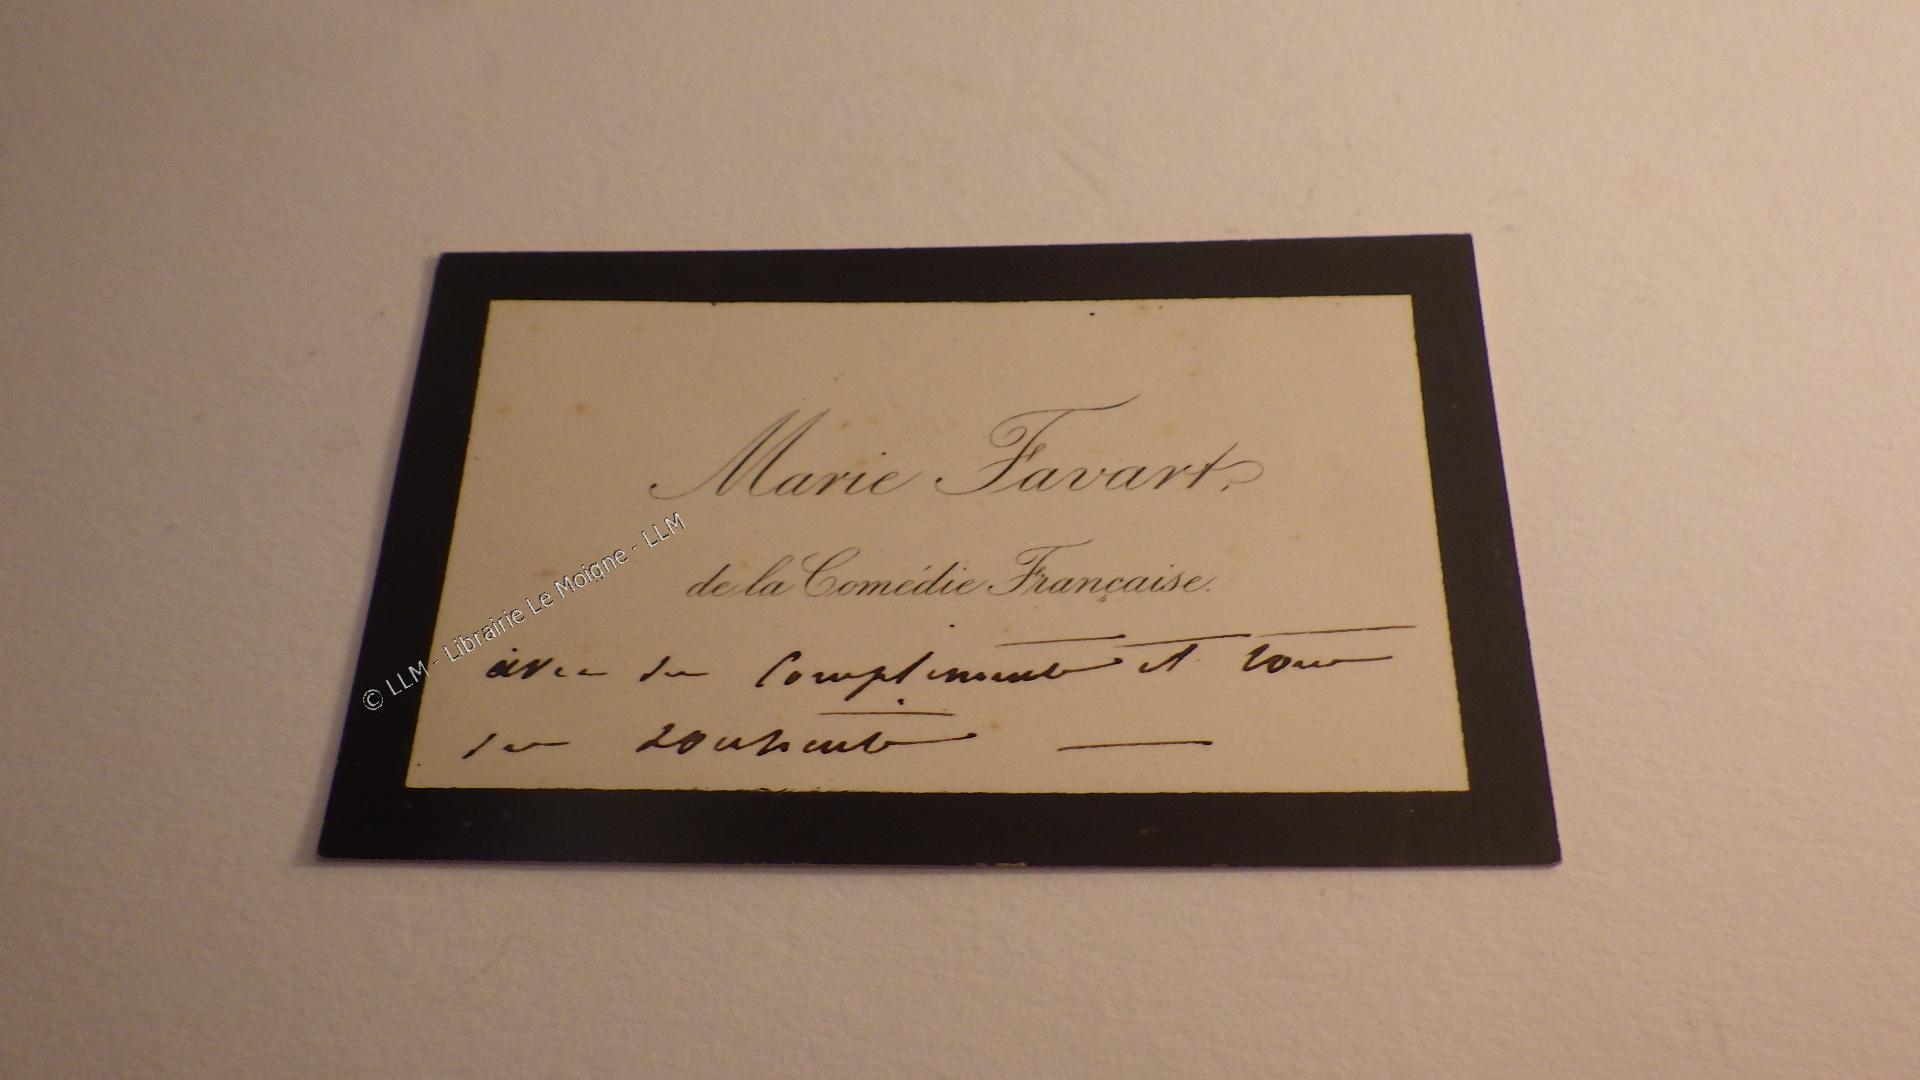 Marie Favart,
de la Comédie Française.
avec ses compliments et tous
ses souhaits
© LLM - Librairie Le Moigne - LLM